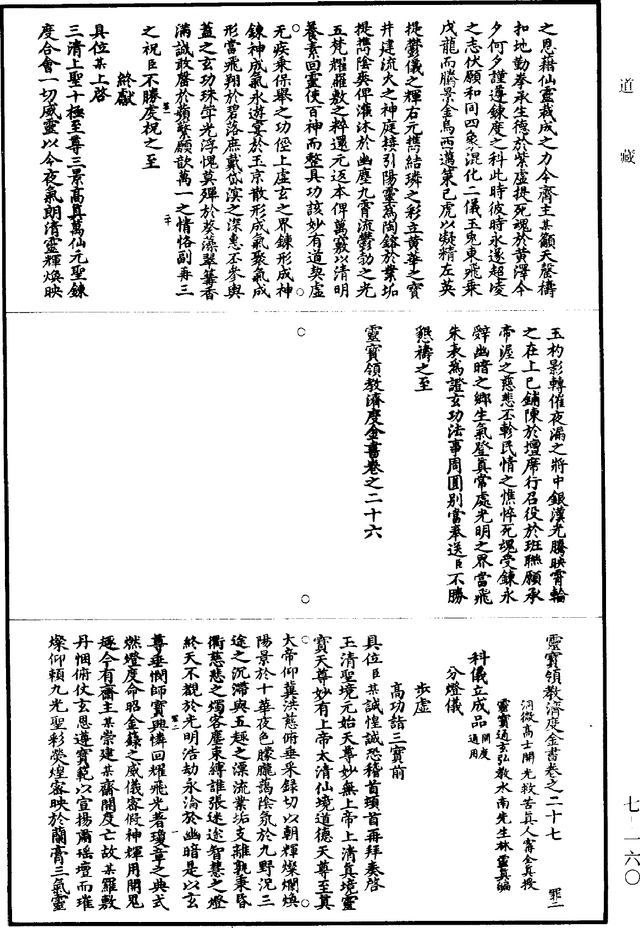 道藏
之恩藉仙靈裁成之力今齋主某籲天罄禱
扣地勤拳承生德於紫虛提死魂於黄澤今
夕何夕謹遵鍊度之科此時彼時永遂超凌
之志伏願和同四象混化二儀玉兎東飛乘
戌龍而騰景金烏西邁策己虎以凝精左英
提鬱儀之輝右元攜結璘之彩立黄華之寶
井建流火之神庭接引陽靈爲陶鎔於業垢
提攜陰爽俾灌沐於幽塵九霄流鬱勃之光
五梵耀羅敷之粹還元返本俾萬竅以清明
養素回靈使百神而整具功該妙有道契虛
无疾乘保舉之功徑上虛玄之界鍊形成神
鍊神成氣永遊宴於玉京散形成氣聚氣成
形當飛翔於碧落庶戴岱溟之深惠丕參輿
蓋之玄功珠斝光浮愧莫殫於葵藻翠篝香
滿誠敢罄於蘋蘩願歆萬一之情恪副再三
之祝臣不勝虔祝之至
終獻
具位某上啓
三清上聖十極至尊三景高真萬仙元聖鍊
度合會一切威靈以今夜氣朗清靈輝煥映
玉杓影轉催夜漏之將中銀漢光騰映霄輪
之在上已鋪陳於壇席行召役於班聯願承
帝渥之慈悲丕軫民情之憔悴死魂受鍊永
辭幽暗之鄉生氣登真常處光明之界當飛
朱表爲證玄功法事周圓别當奉送臣不勝
懇禱之至
靈寶領教濟度金書卷之二十六
靈寶領教濟度金書卷之二十七 罪二
洞微高士開光救苦真人甯全真授
靈寶通玄弘教水南先生林靈真編
科儀立成品 開度通用
分燈儀
步虛
高功詣三寶前
具位臣某誠惶誠恐稽首頓首再拜奏啓
玉清聖境元始天尊妙無上帝上清真境靈
寶天尊妙有上帝太清仙境道德天尊至真
大帝仰冀洪慈俯垂采録切以朝輝燦爛煥
陽景於十華夜色朦朧藹陰氛於九野況三
途之沉滯與五趣之漂流業垢支離孰秉昏
衢慈悲之燭客塵束縛誰張迷途智慧之燈
終天不覩於光明浩劫永淪於幽暗是以玄
尊垂憫師寶興憐回耀飛光著瓊章之典式
燃燈度命昭金籙之威儀密假神輝用開鬼
趣今有齋主某崇建某齋開度亡故某羅敷
丹悃俯仗玄恩遵寶範以宣揚肅瑶壇而璀
燦仰頼九光聖彩熒煌密映於蘭膏三氣靈
七—一六〇